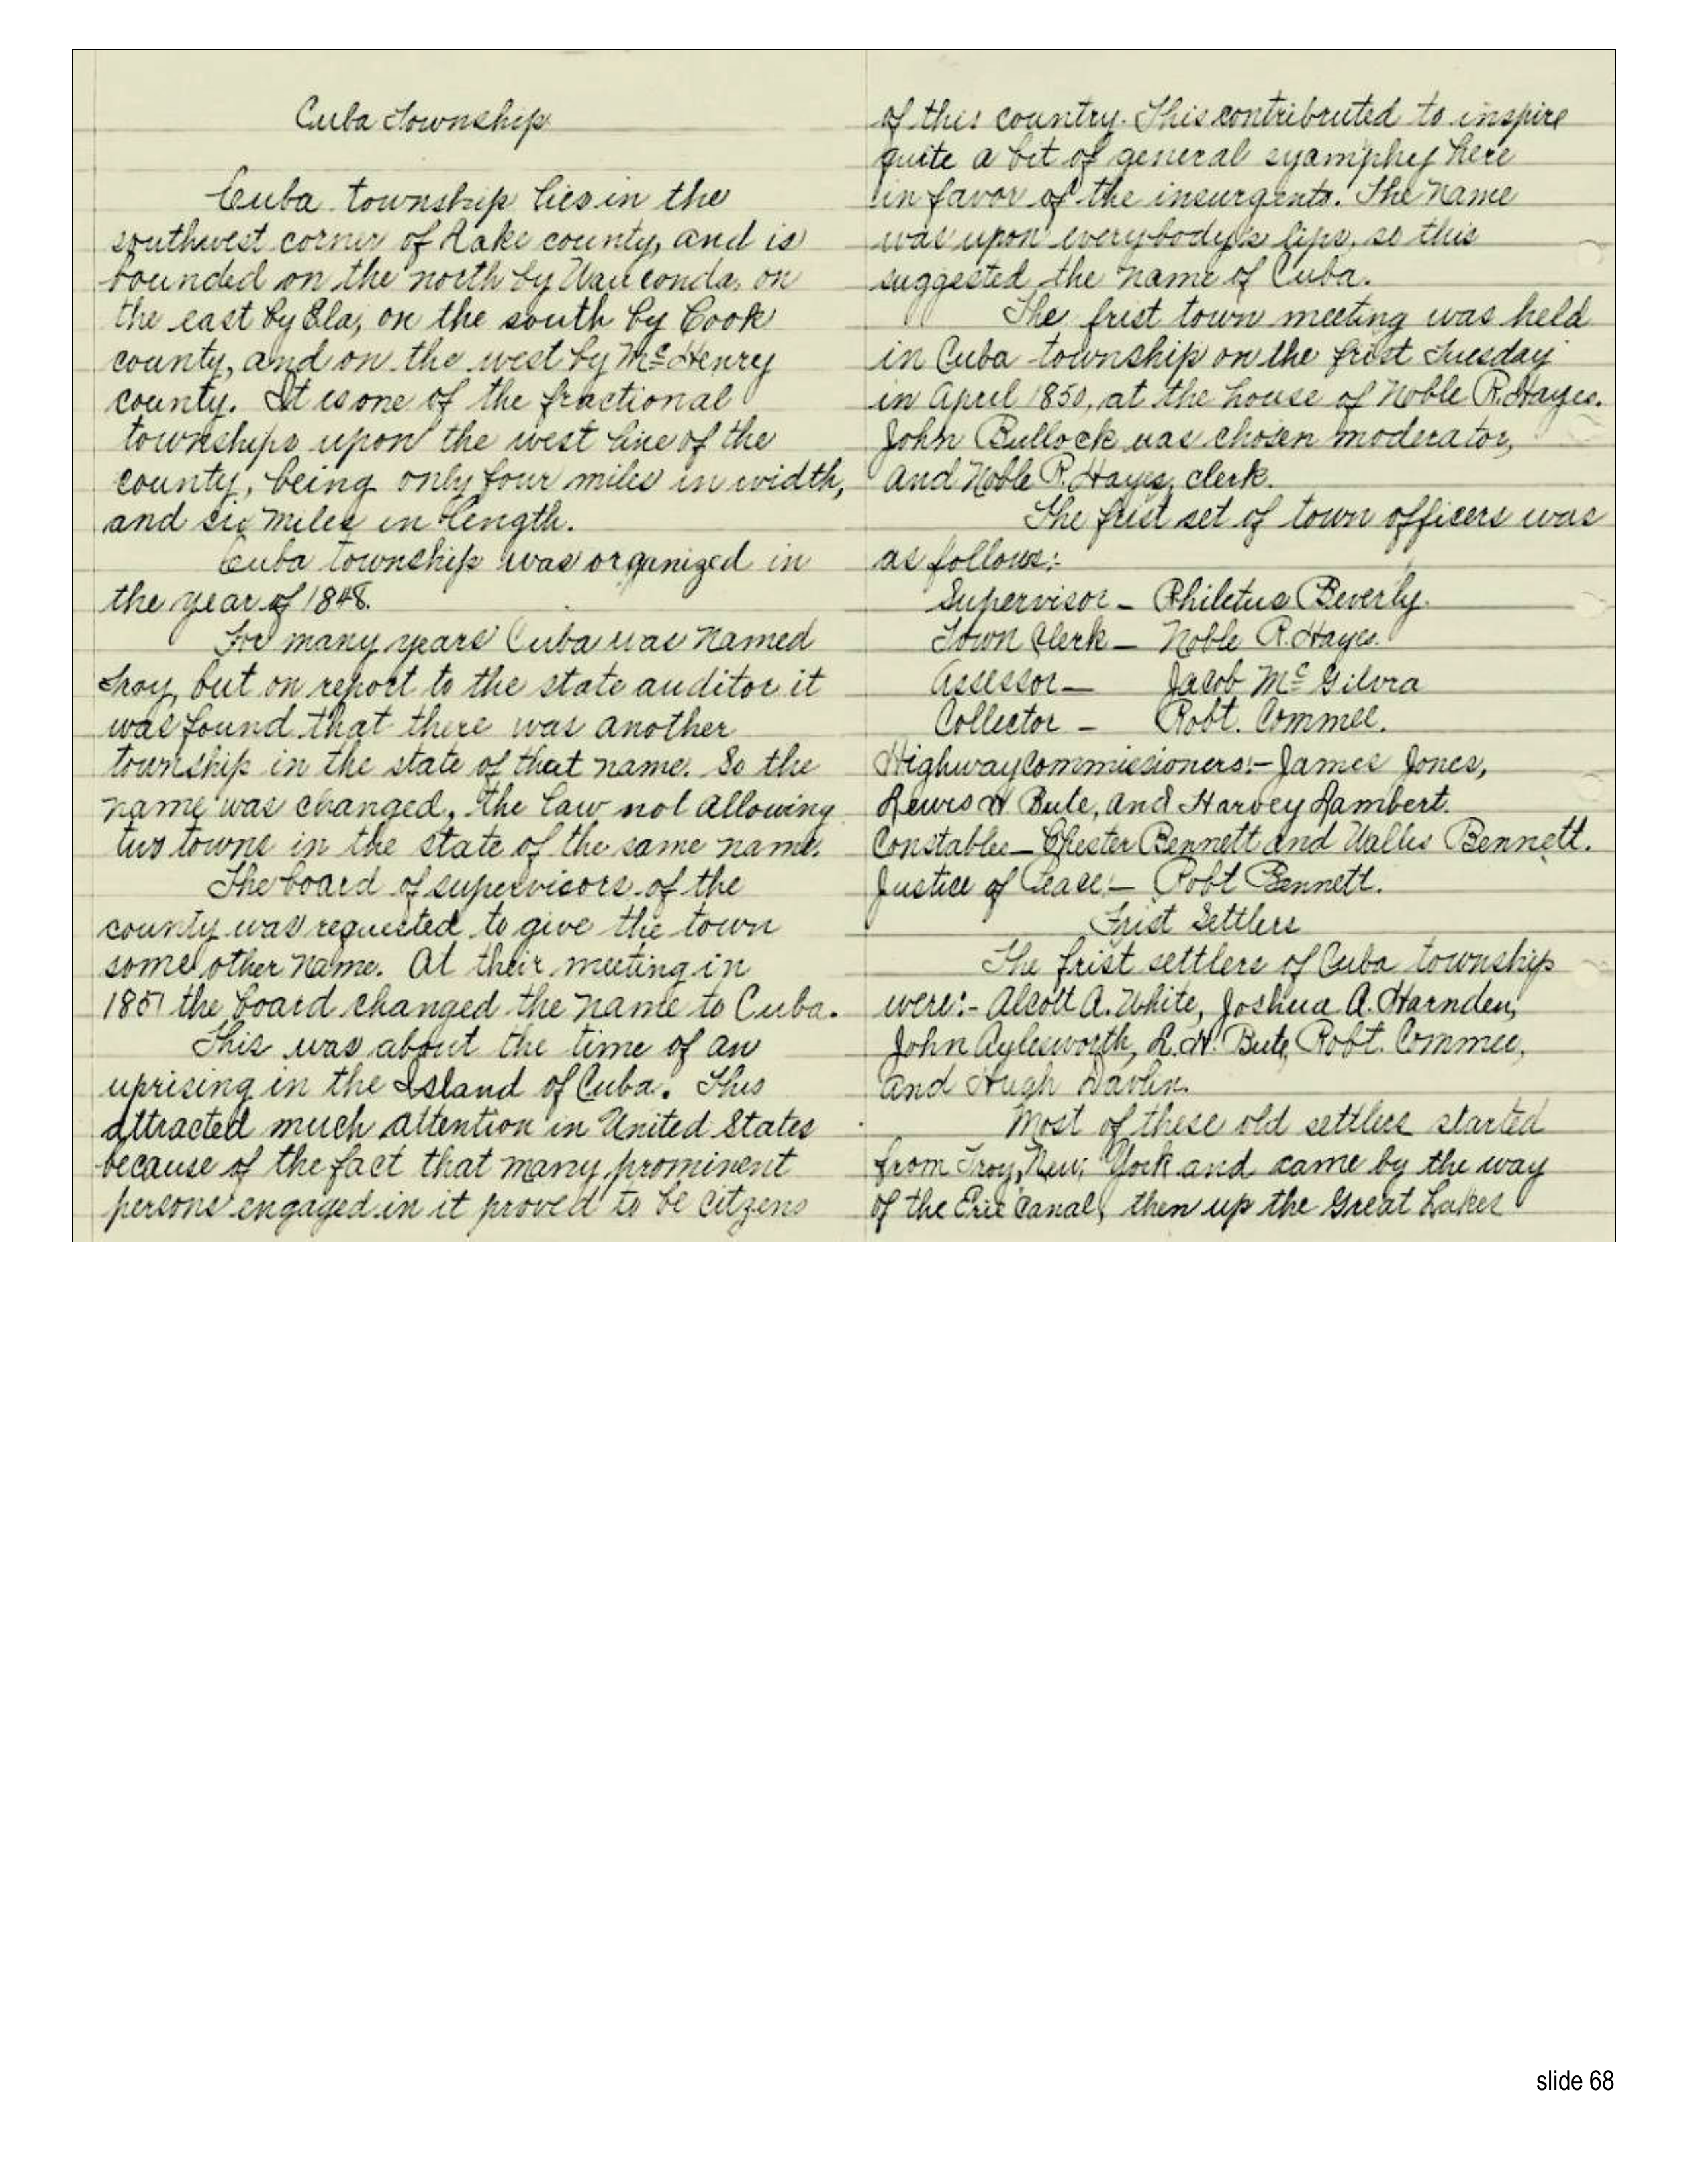 Cuba Township
Cuba township lies in the
southwest corner of Lake county, and is
bounded on the north by Wauconda, on
the east by Ela, on the south by Cook
county, and on the west by McHenry
county. It is one of the fractional
townships upon the west line of the
county, being only four miles in width,
and six miles in length.
Cuba township was organized in
the year of 1848.
For many years Cuba was named
Troy, but on report to the state auditor it
was found that there was another
township in the state of that name. So the
name was changed, the law not allowing
two towns in the state of the same name.
The board of supervisors of the
county was requested to give the town
some other name. At their meeting in
1851 the board changed the name to Cuba.
This was about the time of an
uprising in the Island of Cuba. This
attracted much attention in United States
because of the fact that many prominent
persons engaged in it proved to be citzens
of this country. This contributed to inspire
quite a bit of general syamphy here
in favor of the insurgents. The name
was upon everybody's lips, so this
suggested the name of Cuba.
The frist town meeting was held
in Cuba township on the frist Tuesday
in April 1850, at the house of Noble R. Hayes.
John Bullock was chosen moderator,
and Noble R. Hayes, clerk.
The frist set of town officers was
as follows:-
Supervisor - Philetus Beverly.
Town Clerk - Noble R. Hayes.
Assessor - Jacob McGilvra
Collector - Robt. Commee.
Highway commissioners:- James Jones,
Lewis H Bute, and Harvey Lambert.
Constables - Chester Bennett and Wallis Bennett.
Justice of Peace:- Robt Bennett.
Frist Settlers
The frist settlers of Cuba township
were:- Alcott A. White, Joshua A. Harnden,
John Aylesworth, L.H. Bute, Robt. Commee,
and Hugh Davlin.
Most of these old settlers started
from Troy, New York and came by the way
of the Erie Canal, then up the Great Lakes
slide 68